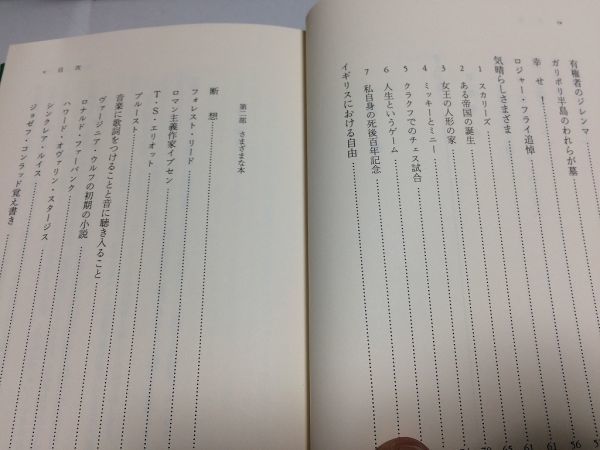 有権者のジレンマ
ガリポリ半島のわれらが墓
幸せ!
ロジャー・フライ追悼
気晴らしさまざま
1 スカリーズ
2 ある帝国の誕生
3 女王の人形の家
4 ミッキーとミニー
5 クラクフでのチェス試合
6 人生というゲーム
7 私自身の死後百年記念
イギリスにおける自由
第二部 さまざまな本
断想
フォレスト・リード
ロマン主義作家イプセン
T・S・エリオット
プルースト
音楽に歌詞をつけることと音に聴き入ること
ヴァージニア・ウルフの初期の小説
ロナルド・ファーバンク
ハワード・オヴァリン・スタージス
シンクレア・ルイス
ジョゼフ・コンラッド覚え書き
目次